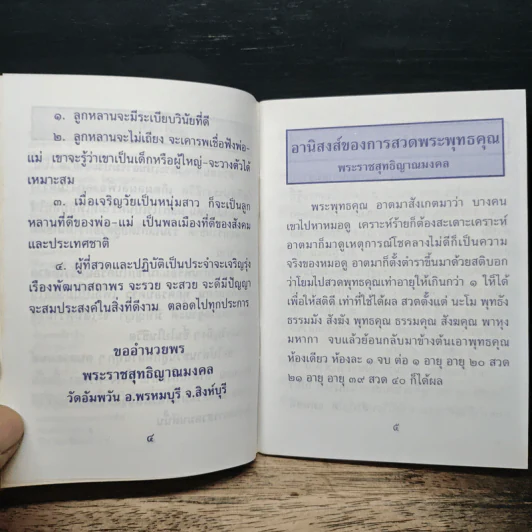 ๑. ลูกหลานจะมีระเบียบวินัยที่ดี
๒. ลูกหลานจะไม่เถียง จะเคารพเชื่อฟังพ่อ-
แม่ เขาจะรู้ว่าเขาเป็นเด็กหรือผู้ใหญ่-จะวางตัวได้
เหมาะสม
๓. เมื่อเจริญวัยเป็นหนุ่มสาว ก็จะเป็นลูก
หลานที่ดีของพ่อ-แม่ เป็นพลเมืองที่ดีของสังคม
และประเทศชาติ
๔. ผู้ที่สวดและปฏิบัติเป็นประจำจะเจริญรุ่ง
เรืองพัฒนาสถาพร จะรวย จะสวย จะดีมีปัญญา
จะสมประสงค์ในสิ่งที่ดีงาม ตลอดไปทุกประการ
ขออำนวยพร
พระราชสุทธิญาณมงคล
วัดอัมพวัน อ.พรหมบุรี จ.สิงห์บุรี
๔
อานิสงส์ของการสวดพระพุทธคุณ
พระราชสุทธิญาณมงคล
พระพุทธคุณ อาตมาสังเกตมาว่า บางคน
เขาไปหาหมอดู เคราะห์ร้ายก็ต้องสะเดาะเคราะห์
อาตมาก็มาดูเหตุการณ์โชคลางไม่ดีก็เป็นความ
จริงของหมอดู อาตมาก็ตั้งตำราขึ้นมาด้วยสติบอก
ว่าโยมไปสวดพุทธคุณเท่าอายุให้เกินกว่า ๑ ให้ได้
เพื่อให้สติดี เท่าที่ใช้ได้ผล สวดตั้งแต่ นะโม พุทธัง
ธรรมมัง สังฆัง พุทธคุณ ธรรมคุณ สังฆคุณ พาหุง
มหากา จบแล้วย้อนกลับมาข้างต้นเอาพุทธคุณ
ห้องเดียว ห้องละ ๑ จบ ต่อ ๑ อายุ อายุ ๒๐ สวด
๒๑ อายุ อายุ ๓๙ สวด ๔๐ ก็ได้ผล
๕